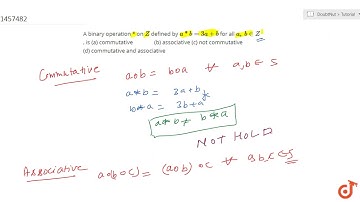 1457482
DoubtNut • Todnut
A binary operation * on Z defined by a * b = 3a + b for all a, b ∈ Z
, is (a) commutative (b) associative (c) not commutative
(d) commutative and associative
Commutative
aob = boa ∀ a,b ∈ S
a*b = 3a+b
b*a = 3b+a
a*b ≠ b*a
NOT HOLD
Associative ao(boc) = (aob)oc ∀ a,b,c ∈ S